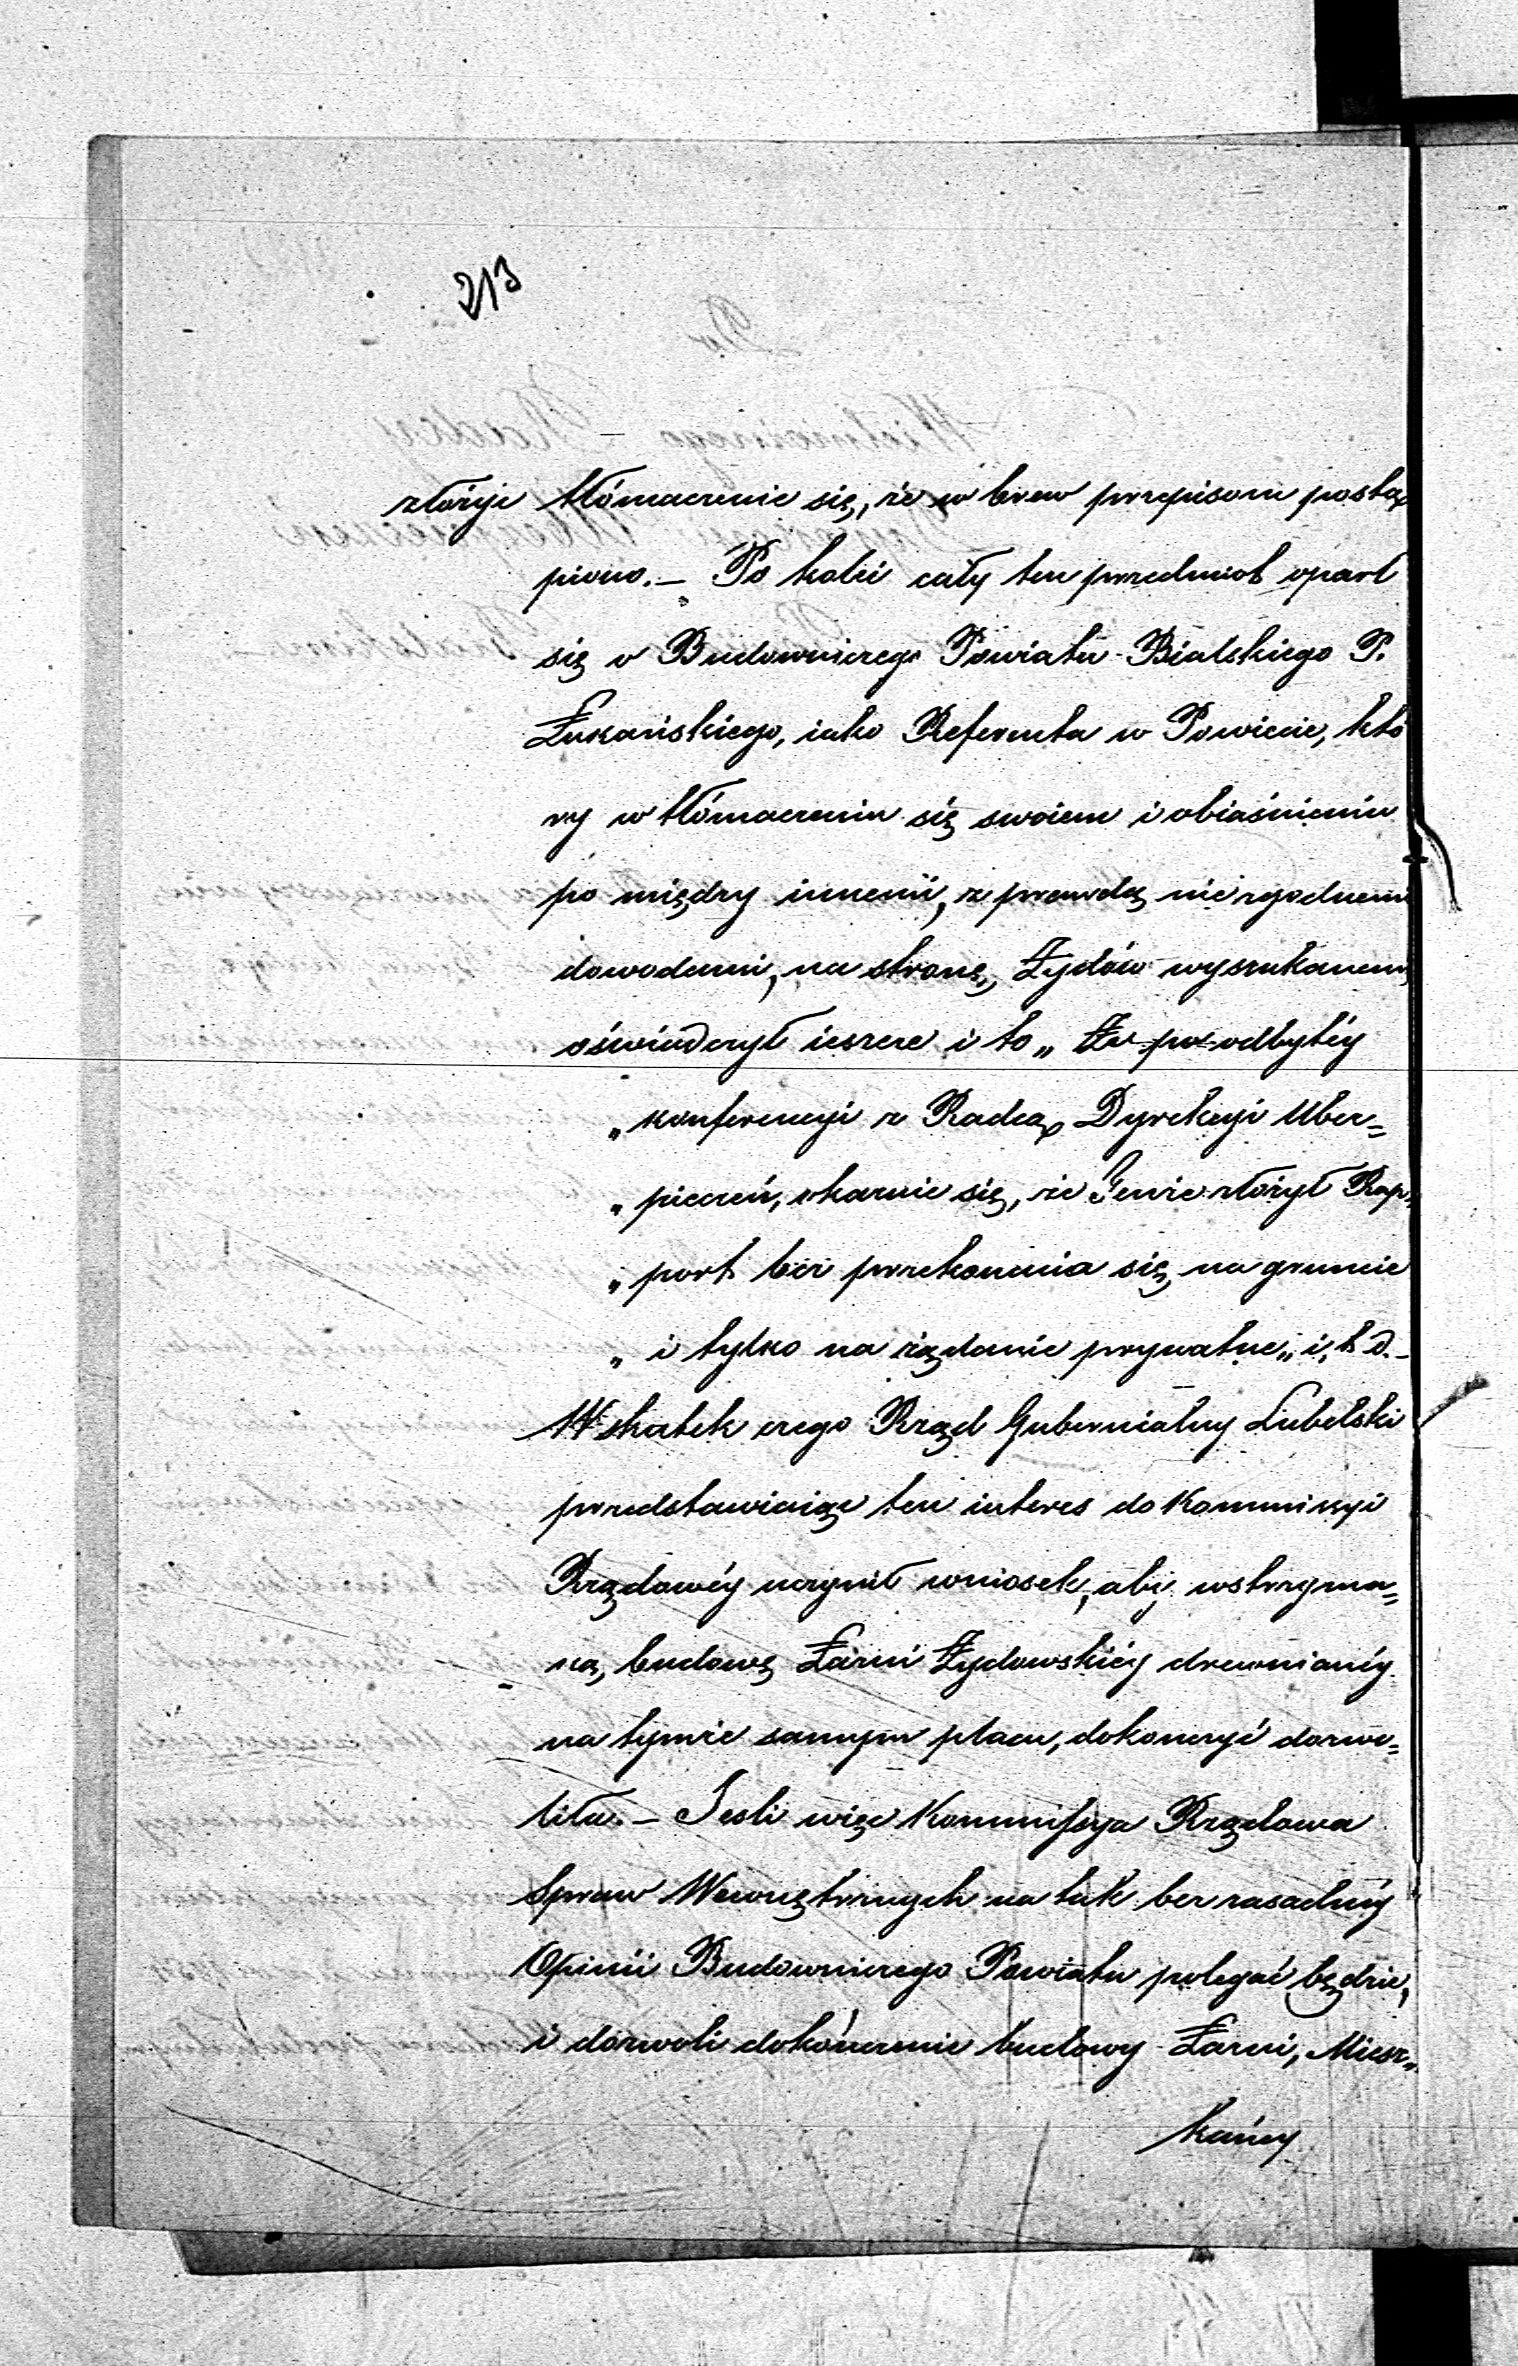 213
złożyć tłómaczenie się, że w brew przepisom postą=
piono. – Po kolei cały ten przedmiot oparł
się o Budowniczego Powiatu Bialskiego P.
Łukańskiego, iako Referenta w Powiecie, któ
ry w tłómaczeniu się swoiem i obiaśnieniu
po między innemi, z prawdą nie zgodnemi
dowodami, na stronę Żydów wyszukanemi
oświadczył ieszcze i to „ Że po odbytéy
„ konferencyi z Radcą Dyrekcyi Ubez=
„ pieczeń, okazuie się, że Genie złożył Rap=
„ port bez przekonania się na gruncie
„ i tylko na żądanie prywatne„ i, t. d. –
W skutek czego Rząd Gubernialny Lubelski
przedstawiaiąc ten interes do Kommissyi
Rządowéy uczynił wniosek, aby wstrzyma=
ną, budowę Łaźni Żydowskiéy drewnianéy
na tymże samym placu, dokonczyć dozwo=
liła. – Jesli więc Kommissya Rządowa
Spraw Wewnętrznych na tak bez zasadnéy
Opinii Budowniczego Powiatu polegać będzie,
i dozwoli dokończenie budowy Łaźni, Miesz„
kańcy